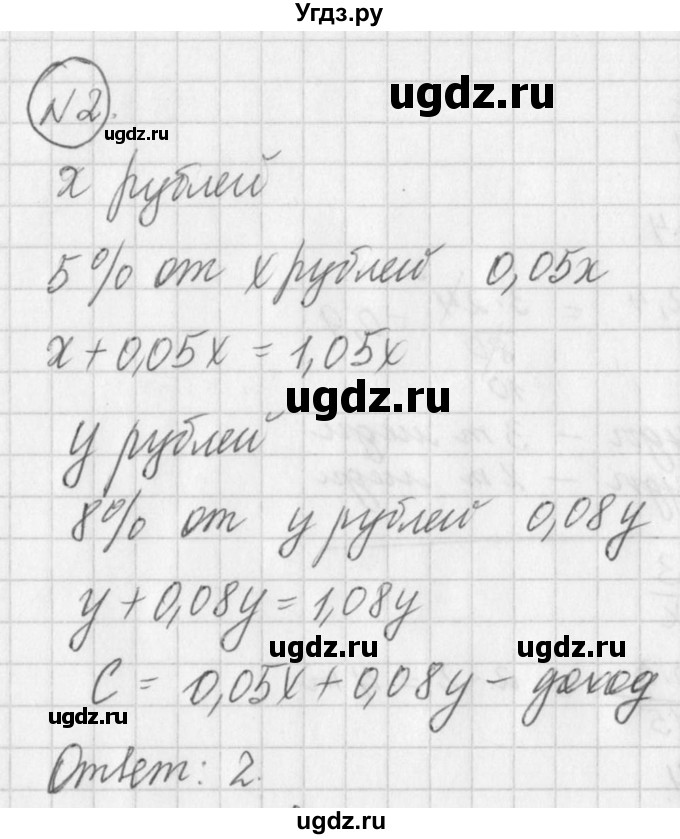 Угдз.ру
ugdz.ru
N2.
ugdz.ru
х рублей
5% от х рублей 0,05х
х+0,05х=1,05х
ugdz.ru
у рублей
8% от у рублей 0,08у
у+0,08у=1,08у
ugdz.ru
ugdz.ru
С = 0,05х+0,08у - доход
ugdz.ru
Ответ: 2.
ugdz.ru